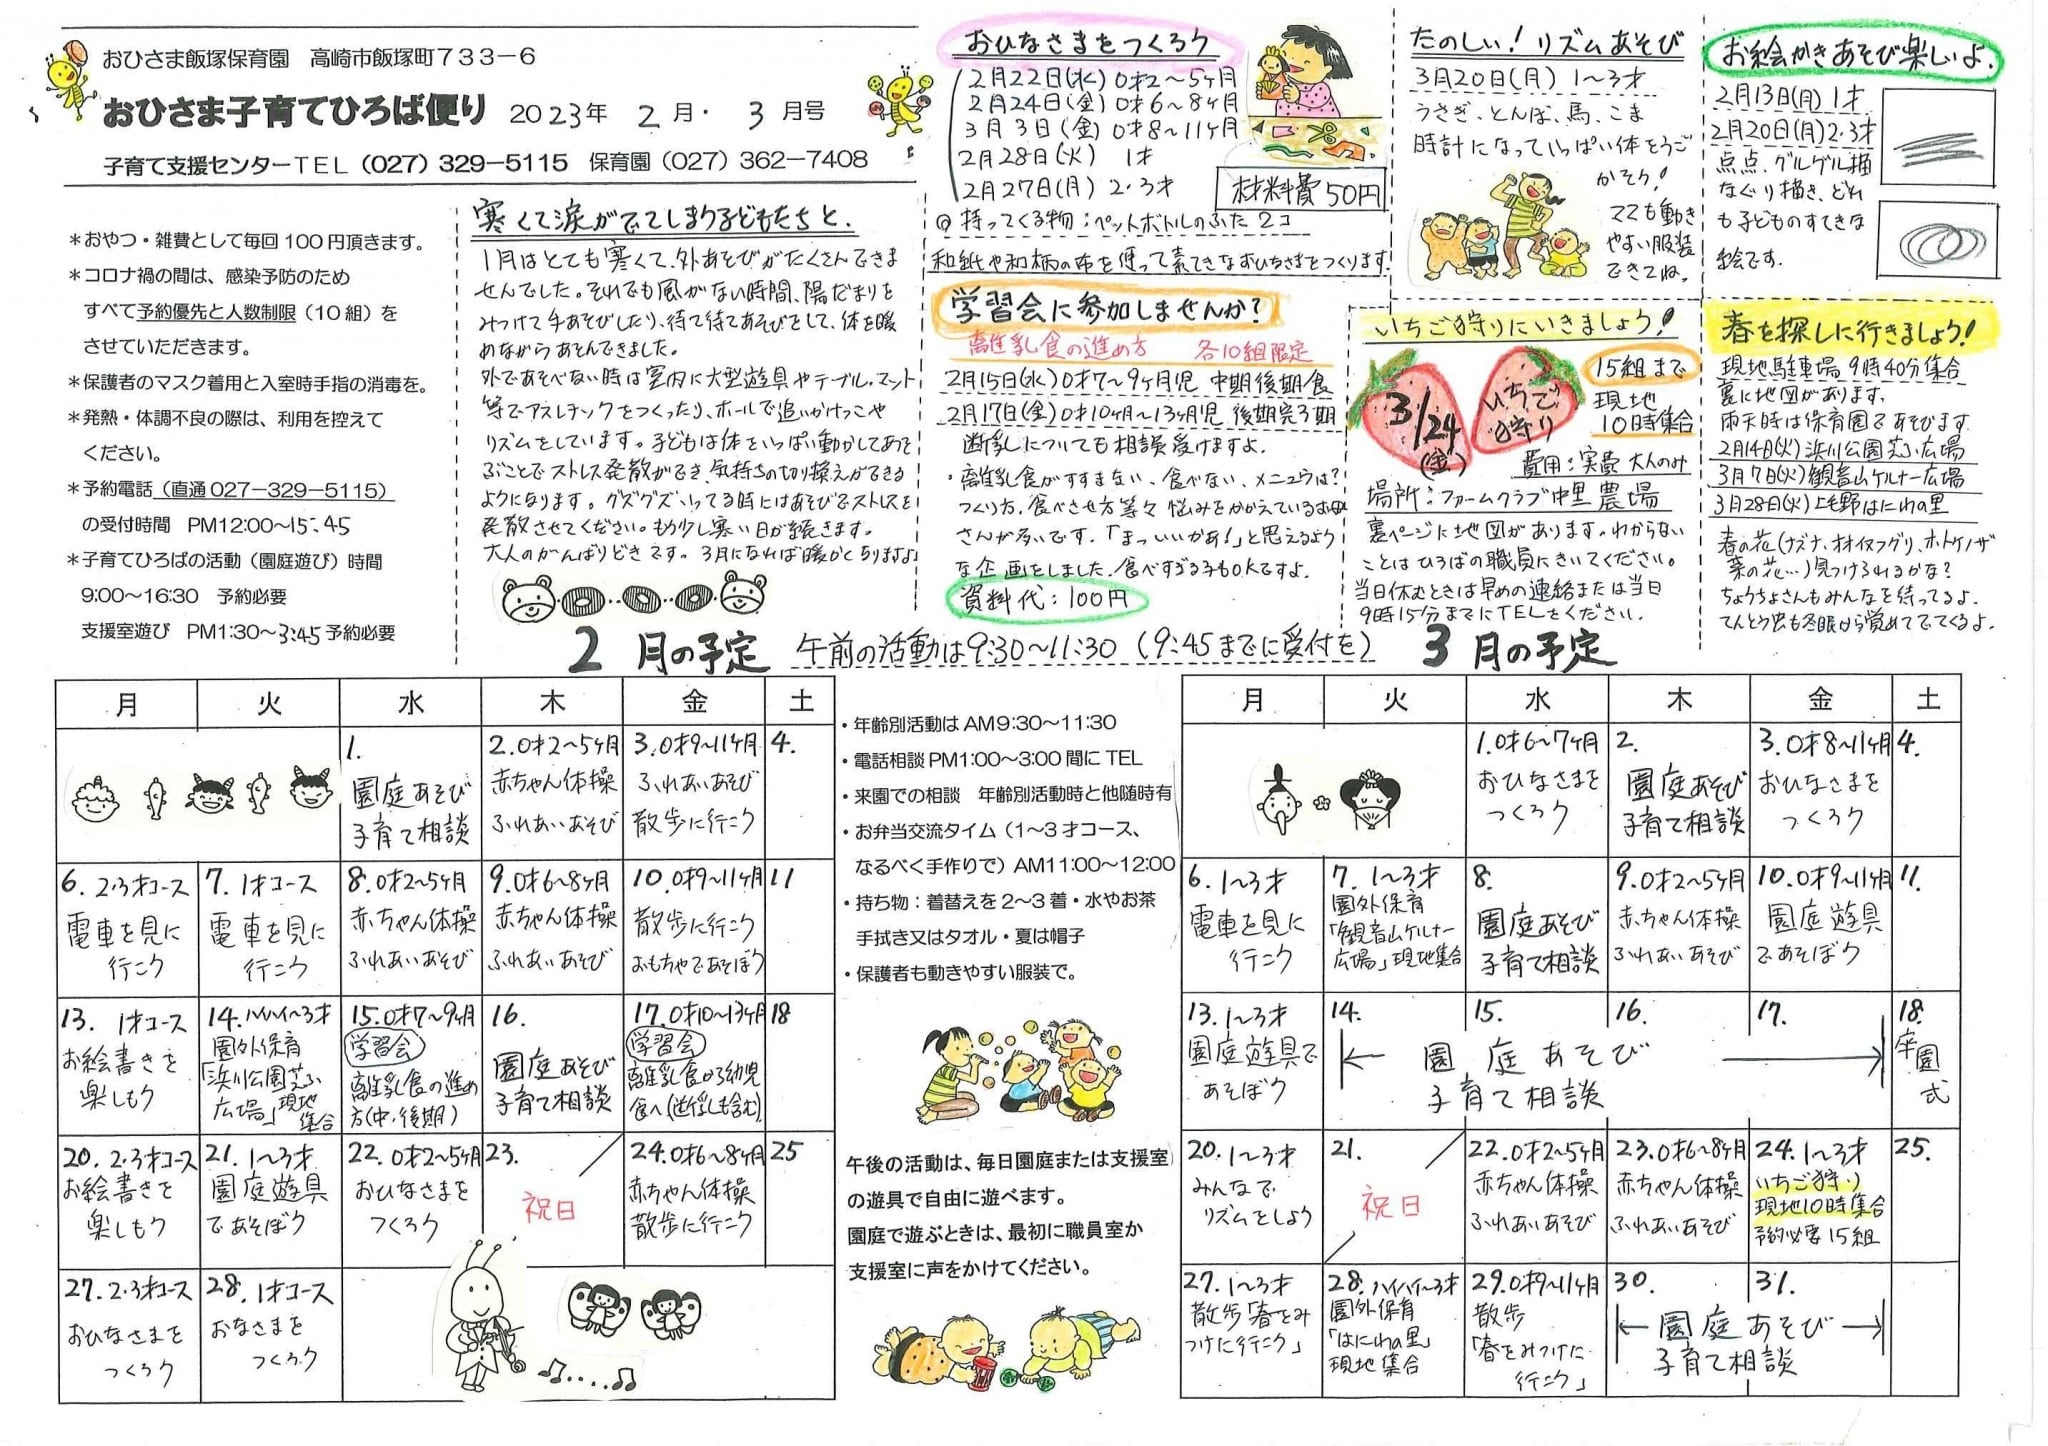 おひさま飯塚保育園　高崎市飯塚町733－6
おひさま子育てひろば便り 2023年 2月・3月号
子育て支援センターTEL（027）329－5115 保育園（027）362－7408
＊おやつ・雑費として毎回100円頂きます。
＊コロナ禍の間は、感染予防のため
すべて予約優先と人数制限（10組）を
させていただきます。
＊保護者のマスク着用と入室時手指の消毒を。
＊発熱・体調不良の際は、利用を控えて
ください。
＊予約電話（直通027－329－5115）
の受付時間　PM12:00～15:45
＊子育てひろばの活動（園庭遊び）時間
9:00～16:30　予約必要
支援室遊び　PM1:30～3:45予約必要
寒くて涙がでてしまう子どもたちと、
1月はとても寒くて、外あそびがたくさんできま
せんでした。それでも風がない時間、陽だまりを
みつけて手あそびしたり、待て待てあそびをして、体を暖
めながらあそんできました。
外であそべない時は室内に大型遊具やテーブル・マット
等でアスレチックをつくったり、ホールで追いかけっこや
リズムをしています。子どもは体をいっぱい動かしてあそ
ぶことでストレス発散ができ、気持ちの切り換えができる
ようになります。グズグズいってる時にはあそびでストレスを
発散させてください。もう少し寒い日が続きます。
大人のがんばりどきです。3月になれば暖かくなりますよ
おひなさまをつくろう
2月22日(水) 0才2～5ヶ月
2月24日(金) 0才6～8ヶ月
3月3日(金) 0才8～11ヶ月
2月28日(火) 1才
2月27日(月) 2・3才
材料費50円
◎持ってくる物：ペットボトルのふた2コ
和紙や和柄の布を使って素てきなおひなさまをつくります。
学習会に参加しませんか？
離乳食の進め方　各10組限定
2月15日(水) 0才7～9ヶ月児 中期後期食
2月17日(金) 0才10ヶ月～13ヶ月児 後期完了期
断乳についても相談受けますよ。
・離乳食がすすまない、食べない、メニュウは？
つくり方、食べさせ方等々 悩みをかかえているお母
さんが多いです。「まっいいかぁ！」と思えるよう
な企画をしました。食べすぎる子もOKですよ。
資料代：100円
たのしい！リズムあそび
3月20日(月) 1～3才
うさぎ、とんぼ、馬、こま
時計になっていっぱい体をうご
かそう！
ママも動き
やすい服装
できてね。
お絵かきあそび楽しいよ。
2月13日(月) 1才
2月20日(月) 2・3才
点点、グルグル描
なぐり描き、どれ
も子どものすてきな
絵です。
いちご狩りにいきましょう！
3/24(金)
いちご狩り
15組まで
現地
10時集合
費用：実費 大人のみ
場所：ファームクラブ中里農場
裏ページに地図があります。わからない
ことはひろばの職員にきいてください。
当日休むときは早めの連絡または当日
9時15分までにTELをください。
春を探しに行きましょう！
現地駐車場 9時40分集合
裏に地図があります。
雨天時は保育園であそびます。
2月14日(火)浜川公園芝ふ広場
3月7日(火)観音山ケルナー広場
3月28日(火)上毛野はにわの里
春の花(ナズナ、オオイヌフグリ、ホトケノザ
菜の花…)見つけられるかな？
ちょうちょさんもみんなを待ってるよ。
てんとう虫も冬眠から覚めてでてくるよ。
2月の予定　午前の活動は9:30～11:30（9:45までに受付を）　3月の予定
月 火 水 木 金 土
1. 園庭あそび 子育て相談
2. 0才2～5ヶ月 赤ちゃん体操 ふれあいあそび
3. 0才9～11ヶ月 ふれあいあそび 散歩に行こう
4.
6. 2・3才コース 電車を見に行こう
7. 1才コース 電車を見に行こう
8. 0才2～5ヶ月 赤ちゃん体操 ふれあいあそび
9. 0才6～8ヶ月 赤ちゃん体操 ふれあいあそび
10. 0才9～11ヶ月 散歩に行こう おもちゃであそぼう
11
13. 1才コース お絵書きを楽しもう
14. ハイハイ～3才 園外保育「浜川公園芝ふ広場」現地集合
15. 0才7～9ヶ月 学習会 離乳食の進め方(中・後期)
16. 園庭あそび 子育て相談
17. 0才10～13ヶ月 学習会 離乳食から幼児食へ(断乳も含む)
18
20. 2・3才コース お絵書きを楽しもう
21. 1～3才 園庭遊具であそぼう
22. 0才2～5ヶ月 おひなさまをつくろう
23. 祝日
24. 0才6～8ヶ月 赤ちゃん体操 散歩に行こう
25
27. 2・3才コース おひなさまをつくろう
28. 1才コース おなさまをつくろう
・年齢別活動はAM9:30～11:30
・電話相談PM1:00～3:00間にTEL
・来園での相談　年齢別活動時と他随時有
・お弁当交流タイム（1～3才コース、
なるべく手作りで）AM11:00～12:00
・持ち物：着替えを2～3着・水やお茶
手拭き又はタオル・夏は帽子
・保護者も動きやすい服装で。
午後の活動は、毎日園庭または支援室
の遊具で自由に遊べます。
園庭で遊ぶときは、最初に職員室か
支援室に声をかけてください。
月 火 水 木 金 土
1. 0才6～7ヶ月 おひなさまをつくろう
2. 園庭あそび 子育て相談
3. 0才8～11ヶ月 おひなさまをつくろう
4.
6. 1～3才 電車を見に行こう
7. 1～3才 園外保育「観音山ケルナー広場」現地集合
8. 園庭あそび 子育て相談
9. 0才2～5ヶ月 赤ちゃん体操 ふれあいあそび
10. 0才9～11ヶ月 園庭遊具であそぼう
11.
13. 1～3才 園庭遊具であそぼう
14. 15. 16. 17. 園庭あそび 子育て相談
18. 卒園式
20. 1～3才 みんなでリズムをしよう
21. 祝日
22. 0才2～5ヶ月 赤ちゃん体操 ふれあいあそび
23. 0才6～8ヶ月 赤ちゃん体操 ふれあいあそび
24. 1～3才 いちご狩り 現地10時集合 予約必要15組
25.
27. 1～3才 散歩「春をみつけに行こう」
28. ハイハイ～3才 園外保育「はにわの里」現地集合
29. 0才9～11ヶ月 散歩「春をみつけに行こう」
30. 31. 園庭あそび 子育て相談